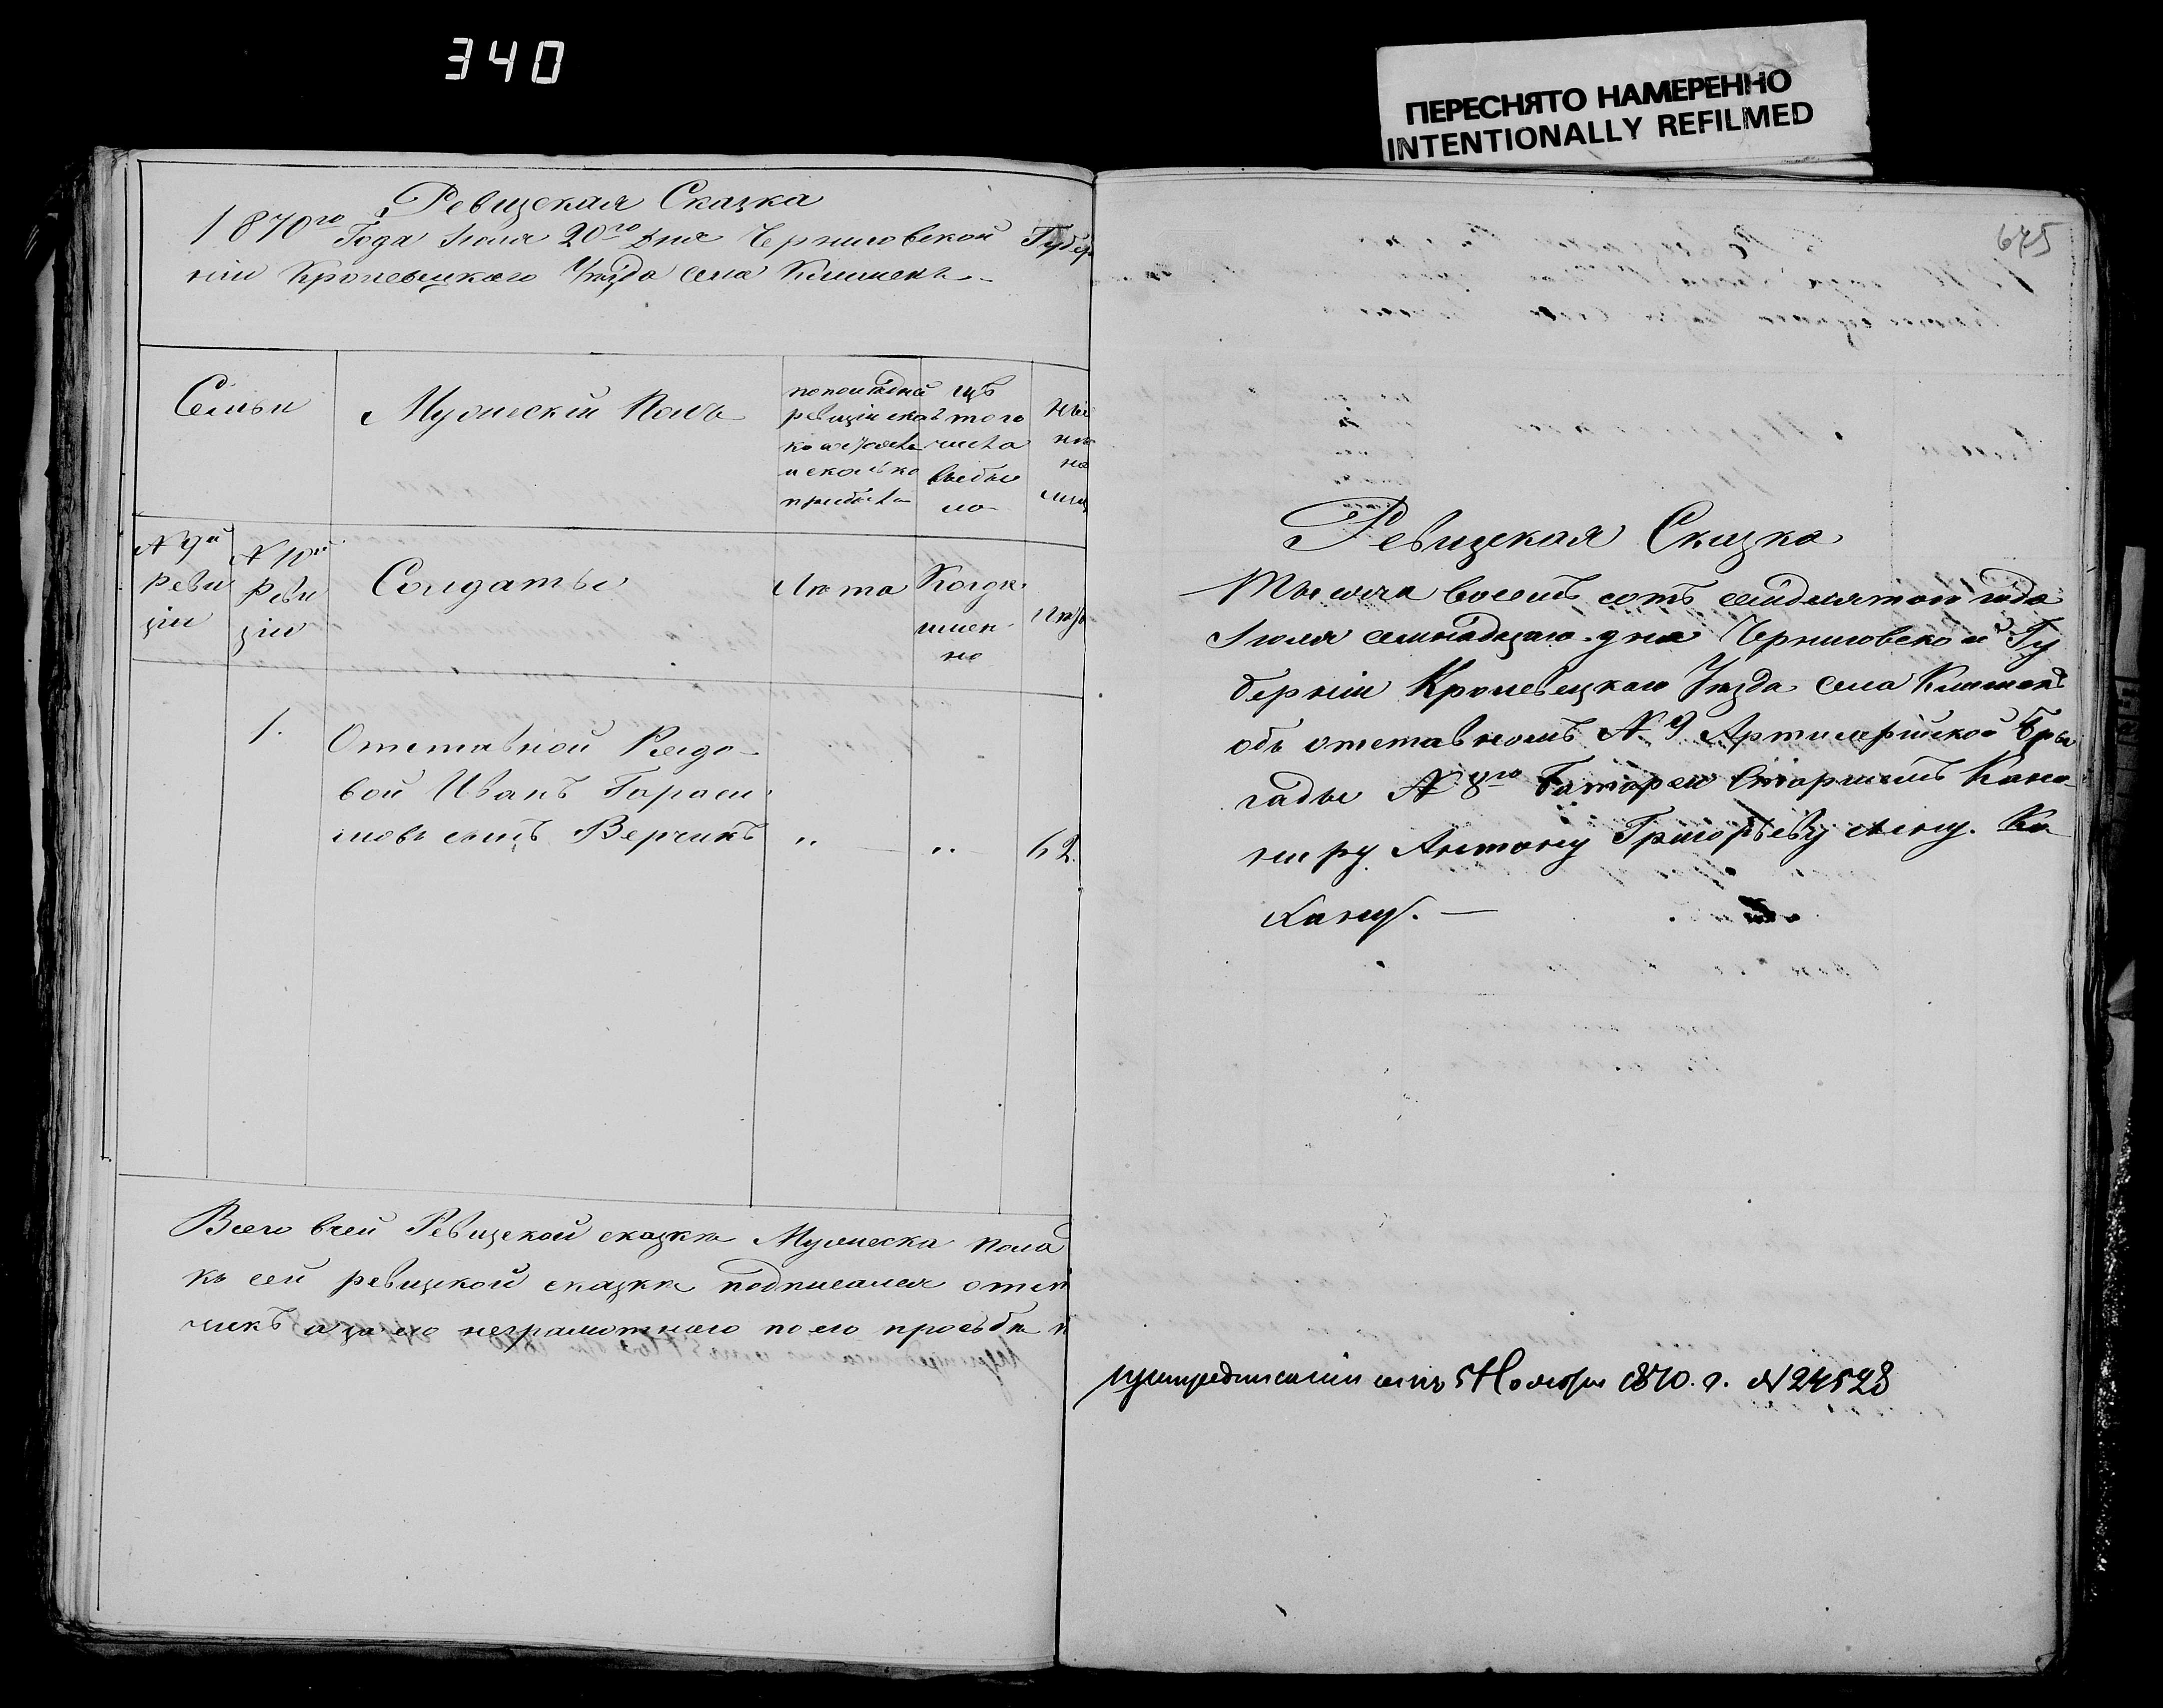 340
ПЕРЕСНЯТО НАМЕРЕННО
INTENTIONALLY REFILMED
Ревизская Сказка
1870го Года Июля 20го Дня Черниговской Губер
нiи Кролевецкаго Уѣзда села Клишекъ
Семьи
Мужескiй Полъ
по последней
ревизiи
и сколько
прибыло
изъ
того
числа
выбы
ло
Ны
нѣ
на
лиц
№ 9й
Реви
зiи
№ 10й
Реви
зiи
Солдаты
Лѣта
Когда
имен
но
Лѣт
1.
Отставной Рядо
вой Иванъ Гараси
мовъ сынъ Верчикъ
„
„
62.
Всего всей Ревизской сказки Мужеска пола
къ сей ревизской сказки подписался
чикъ а за его неграмотнаго по его просьбѣ
645
Ревизская Сказка
Тысяча восемь сотъ семидесятого года
Июля семнадцаго дня Черниговской Гу
бернiи Кролевецкаго Уѣзда села Клишекъ
объ отставномъ № 9 Артилерiйской Бри
гады № 8го Батареи Старшимъ Кано
ниру Антону Григорьеву сыну. Ка
хану. —
при предписанiи отъ 5 Ноября 1870. г. № 24528